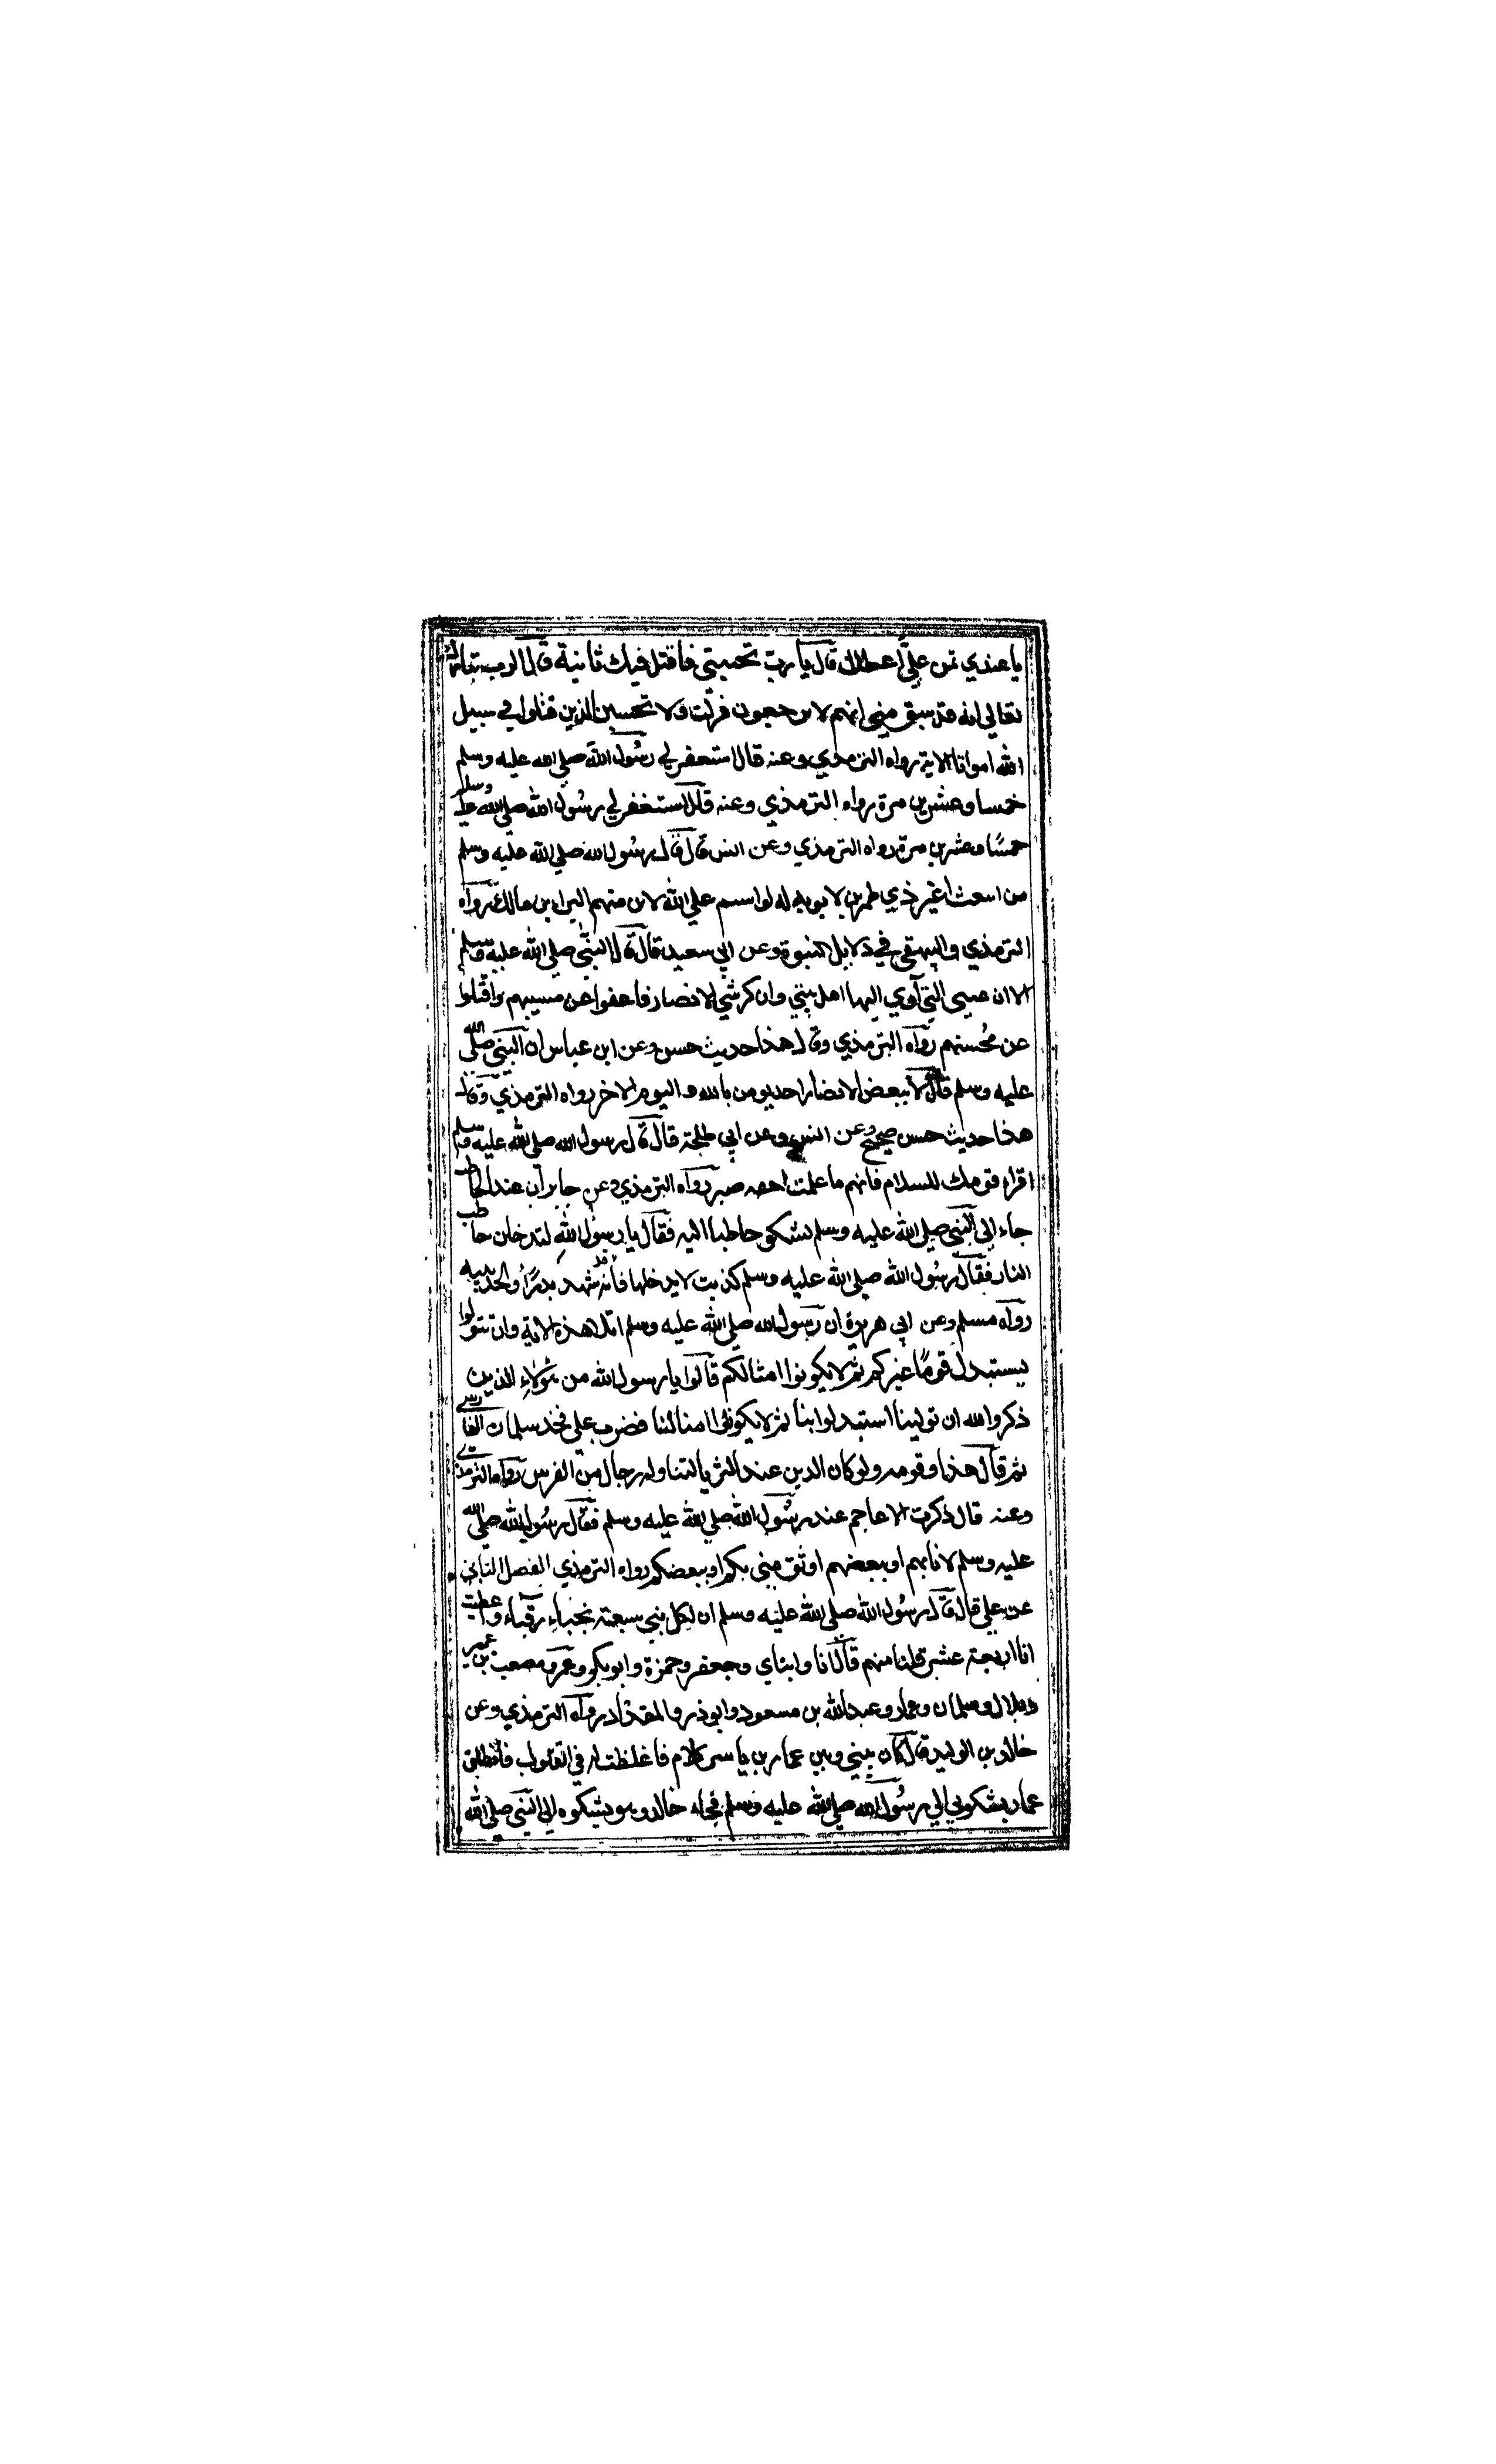 يا عبدي تمن علي اعطك قال يا رب تحييني فاقتل فيك ثانية قال الرب تبارك
تعالى انه قد سبق مني انهم لا يرجعون فنزلت ولا تحسبن الذين قتلوا في سبيل
الله امواتا الاية رواه الترمذي وعنه قال استغفر لي رسول الله صلى الله عليه وسلم
خمسا وعشرين مرة رواه الترمذي وعنه قال استغفر لي رسول الله صلى الله عليه وسلم
خمسًا وعشرين مرة رواه الترمذي وعن انس قال قال رسول الله صلى الله عليه وسلم
من اشعث اغبر ذي طمرين لا يوبه له لو اقسم علي الله لابره منهم البراء بن مالك رواه
الترمذي والبيهقي في دلايل النبوة وعن ابي سعيد قال قال النبي صلى الله عليه وسلم
الا ان عيبتي التي آوي اليها اهل بيتي وان كرشي الانصار فاعفوا عن مسيهم واقبلوا
عن مُحسنهم رواه الترمذي وقال هذا حديث حسن وعن ابن عباس ان النبي صلى الله
عليه وسلم قال لا يبغض الانصار احد يومن بالله واليوم الاخر رواه الترمذي وقال
هذا حديث حسن صحيح وعن انس وعن ابي طلحة قال قال رسول الله صلى الله عليه وسلم
اقراء قومك السلام فانهم ما علمت اعفه صبر رواه الترمذي وعن جابر ان عبدا لحاطب
جاء الى النبي صلى الله عليه وسلم يشكي حاطبا اليه فقال يا رسول الله ليدخلن حاطب
النار فقال رسول الله صلى الله عليه وسلم كذبت لا يدخلها فانه قد شهد بدرًا والحديبيه
رواه مسلم وعن ابي هريرة ان رسول الله صلى الله عليه وسلم تلا هذه الاية وان تتولوا
يستبدل قومًا غيركم ثم لا يكونوا امثالكم قالوا يا رسول الله من هولاء الذين
ذكر الله ان تولينا استبدلوا بنا ثم لا يكونوا امثالنا فضرب على فخذ سلمان الفارسي
ثم قال هذا وقومه ولو كان الدين عند الثريا لتناوله رجال من الفرس رواه الترمذي
وعنه قال ذكرت الاعاجم عند رسول الله صلى الله عليه وسلم فقال رسول الله صلى الله
عليه وسلم لانا بهم او ببعضهم اوثق مني بكم او ببعضكم رواه الترمذي الفصل الثاني
عن علي قال قال رسول الله صلى الله عليه وسلم ان لكل نبي سبعة نجباء رقباء واعطيت
انا اربعة عشر قلنا منهم قال انا وابناي وجعفر وحمزة وابوبكر وعمر ومصعب بن عمير
وبلال وسلمان وعمار وعبدالله بن مسعود وابوذر والمقداد رواه الترمذي وعن
خالد بن الوليد قال كان بيني وبين عمار بن ياسر كلام فاغلظت له في القول فانطلق
عمار يشكوني الي رسول الله صلى الله عليه وسلم فجاء خالد وهو يشكوه الى النبي صلى الله